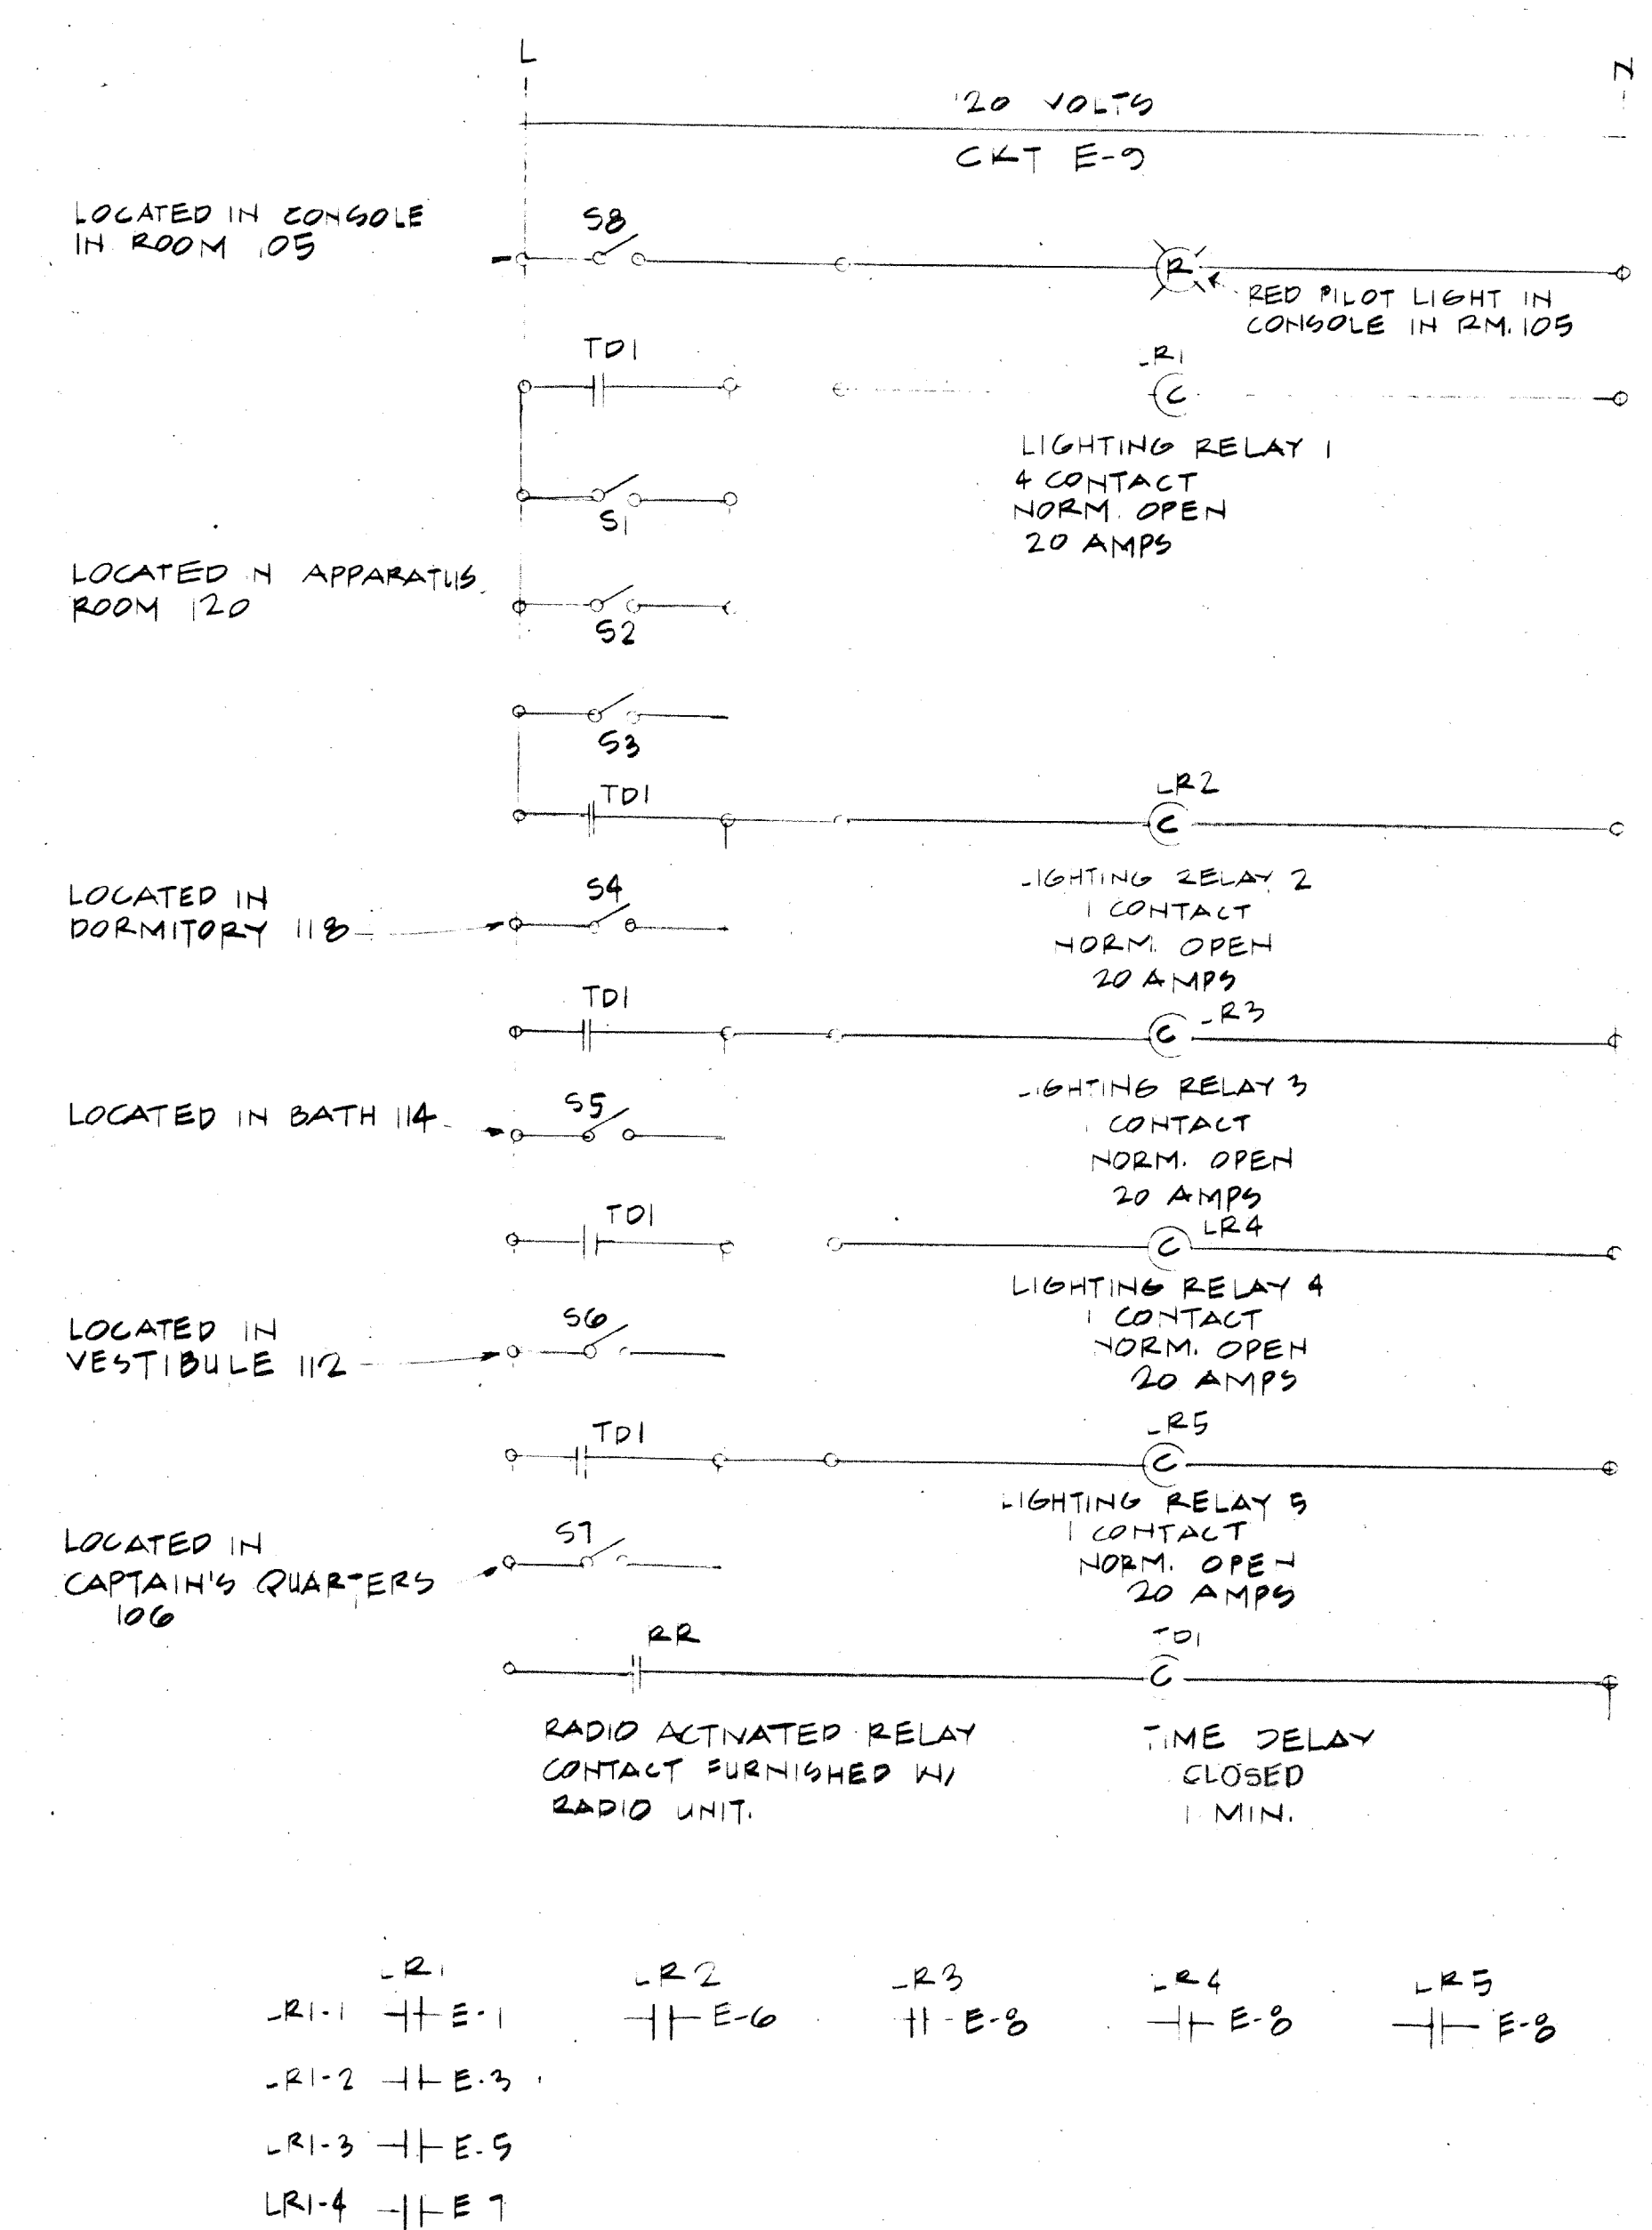 L
N
120 VOLTS
CKT E-9
LOCATED IN CONSOLE
IN ROOM 105
S8
R
RED PILOT LIGHT IN
CONSOLE IN RM. 105
TD1
LR1
C
LIGHTING RELAY 1
4 CONTACT
NORM. OPEN
20 AMPS
S1
LOCATED IN APPARATUS
ROOM 120
S2
S3
TD1
LR2
C
LIGHTING RELAY 2
1 CONTACT
NORM. OPEN
20 AMPS
LOCATED IN
DORMITORY 118
S4
TD1
LR3
C
LIGHTING RELAY 3
1 CONTACT
NORM. OPEN
20 AMPS
LOCATED IN BATH 114
S5
TD1
LR4
C
LIGHTING RELAY 4
1 CONTACT
NORM. OPEN
20 AMPS
LOCATED IN
VESTIBULE 112
S6
TD1
LR5
C
LIGHTING RELAY 5
1 CONTACT
NORM. OPEN
20 AMPS
LOCATED IN
CAPTAIN'S QUARTERS
106
S7
RR
TD1
C
RADIO ACTIVATED RELAY
CONTACT FURNISHED W/
RADIO UNIT.
TIME DELAY
CLOSED
1 MIN.
LR1
LR1-1 E-1
LR1-2 E-3
LR1-3 E-5
LR1-4 E 7
LR2
E-6
LR3
E-8
LR4
E-8
LR5
E-8